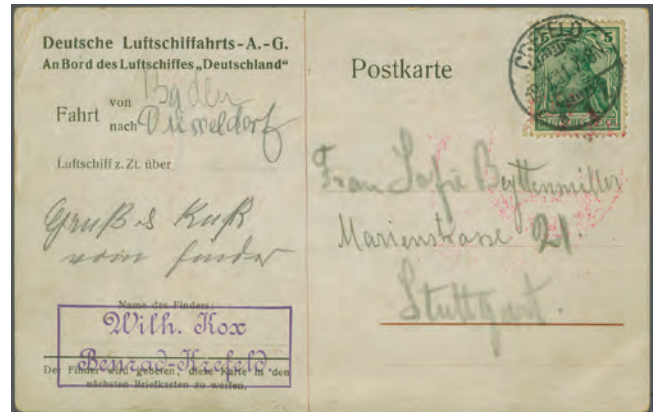 Deutsche Luftschiffahrts-A.-G.
An Bord des Luftschiffes „Deutschland“
Fahrt von Baden
nach Düsseldorf
Luftschiff z. Zt. über
Gruß & Kuß
vom finder
Name des Finders:
Wilh. Kox
Benrad-Krefeld.
Der Finder wird gebeten, diese Karte in den
nächsten Briefkasten zu werfen.
Postkarte
CREFELD
5
DEUTSCHES REICH
Frau Sofie Beyttenmiller
Marienstrasse 21.
Stuttgart.